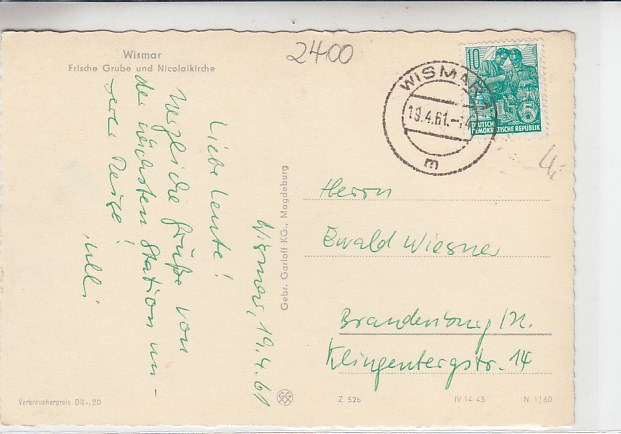 Wismar
Frische Grube und Nicolaikirche
2400
10
DEUTSCHE
DEMOKRATISCHE REPUBLIK
WISMAR 1
19.4.61.-14
m
Wismar, 19.4.61
Liebe Leute!
Herzliche Grüße von
der nächsten Station un-
serer Reise!
Ulli
Gebr. Garloff KG., Magdeburg
Herrn
Ewald Wiesner
Brandenburg/H.
Klingenbergstr. 14
Verbraucherpreis DM -,20
Z 526
IV-14-45
N 1/60